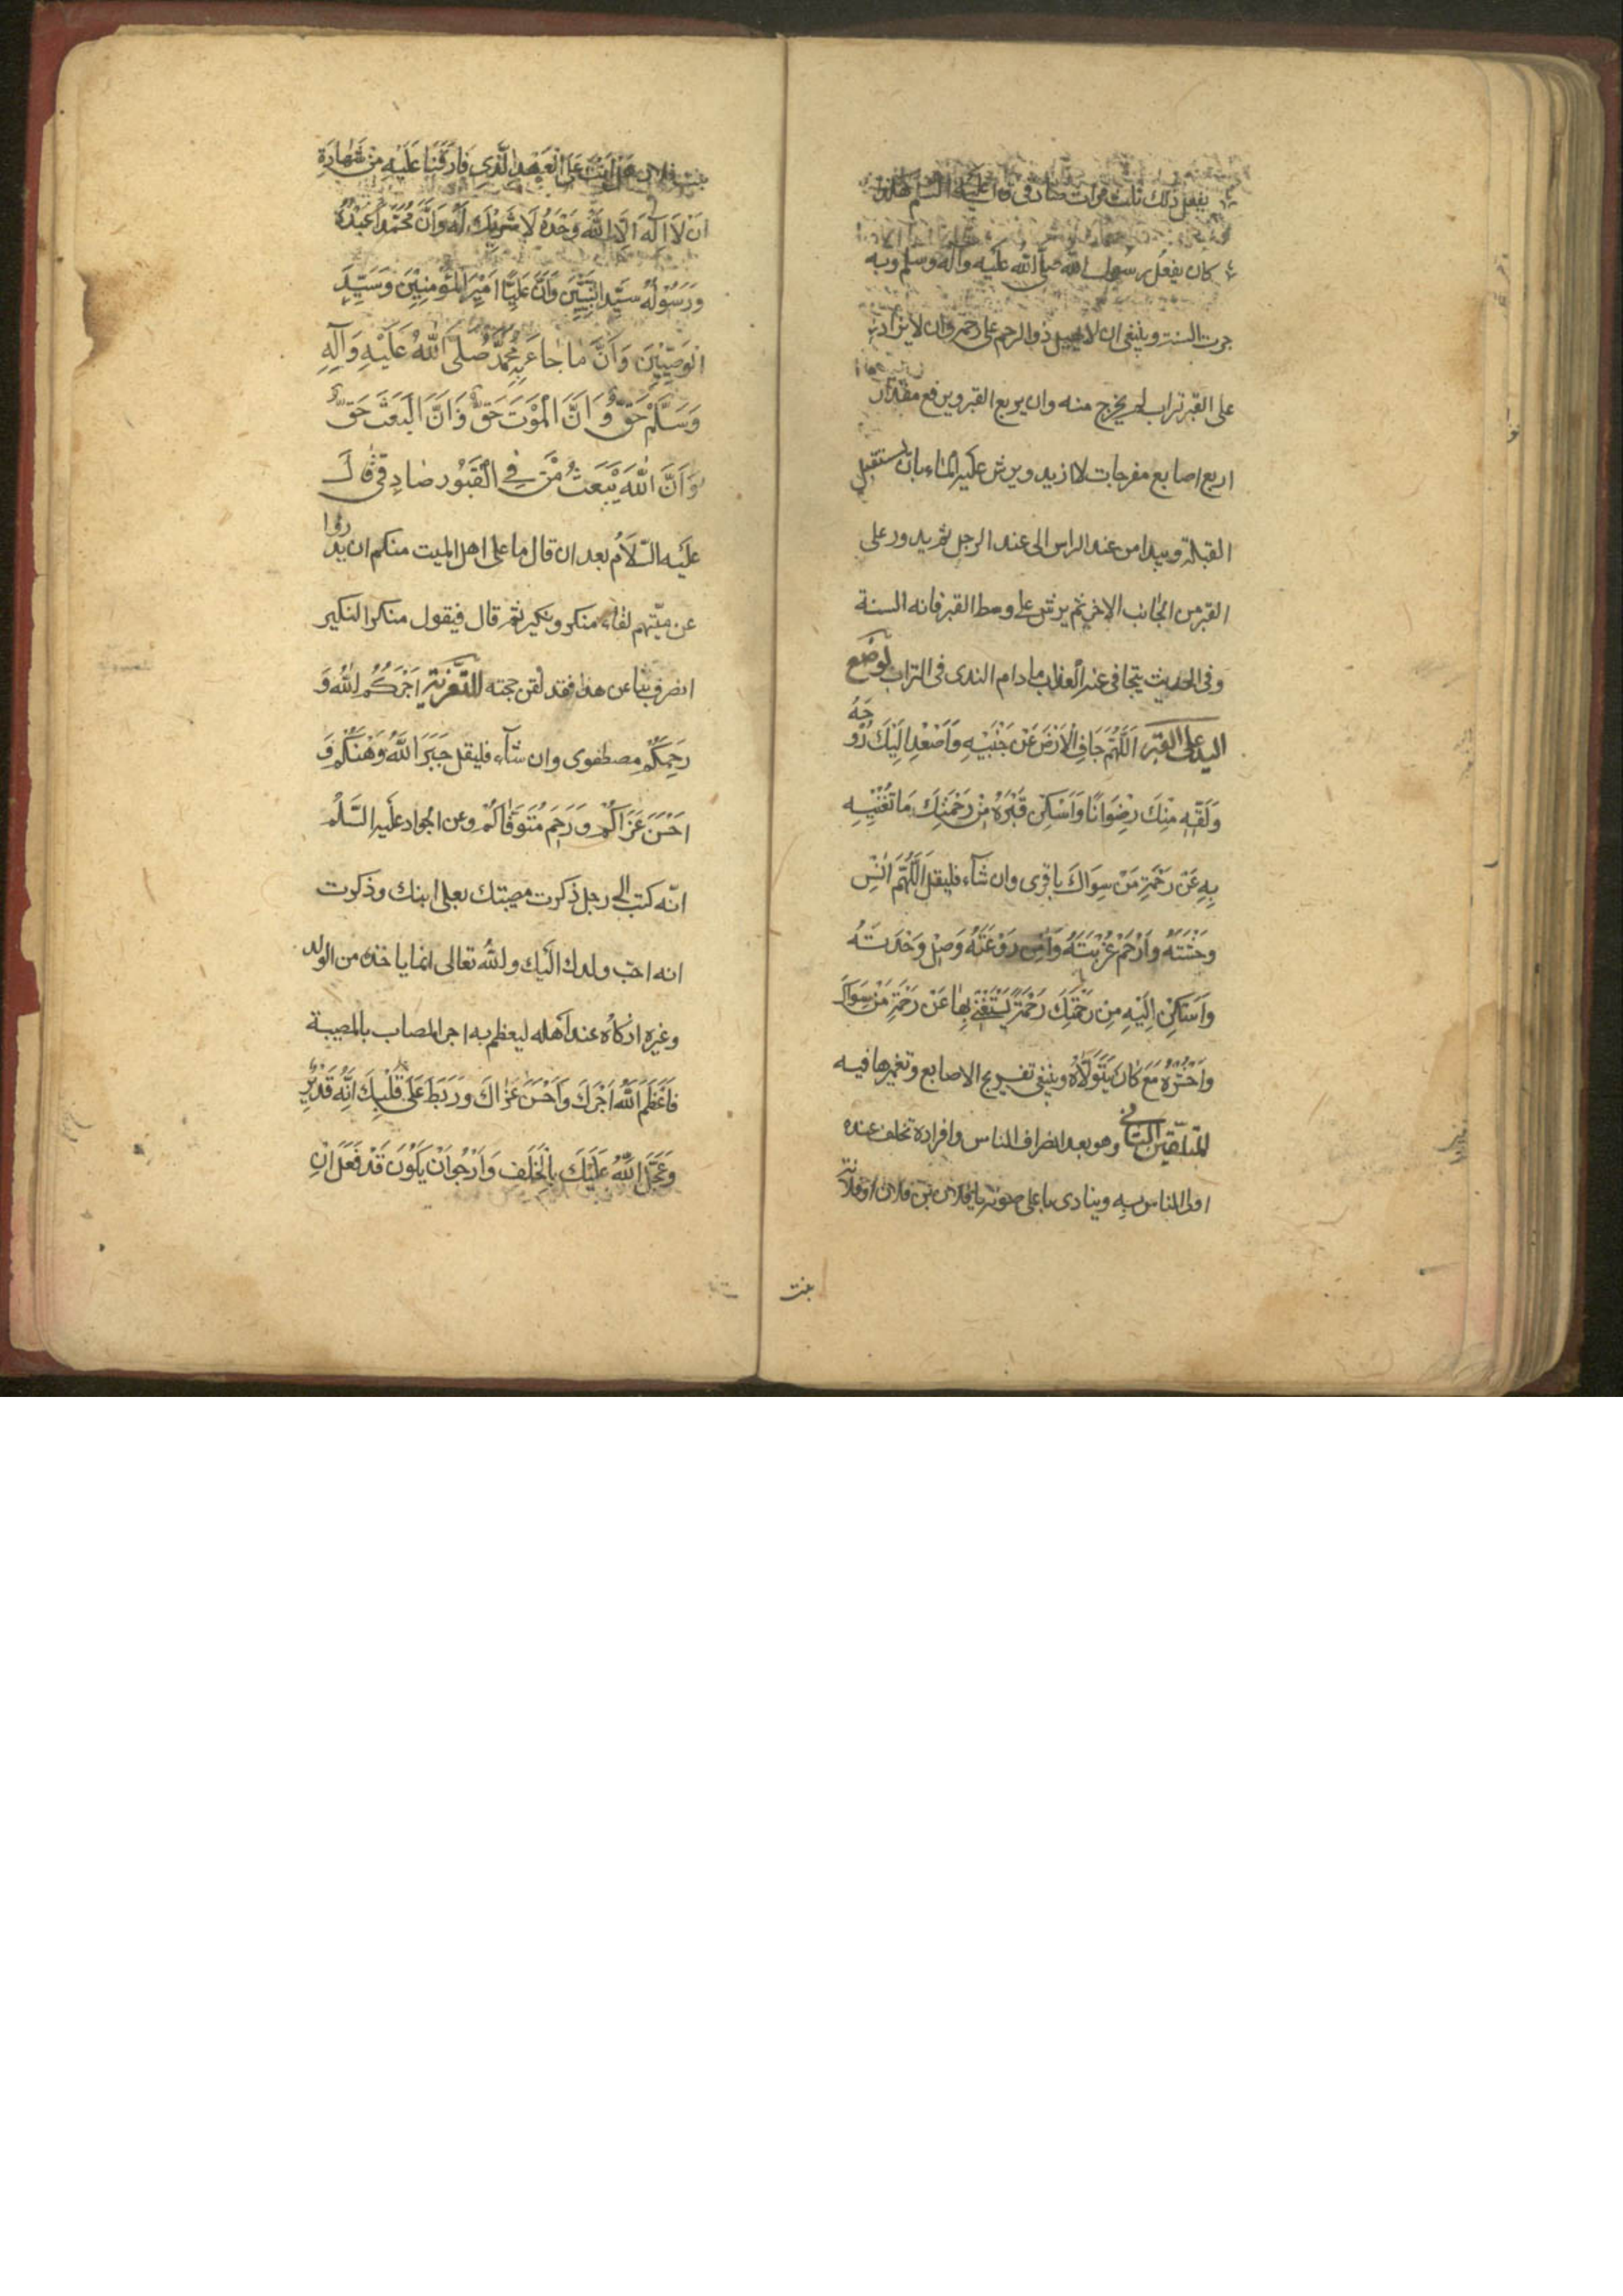 يفعل ذلك ثلث مرات صادقى قال عليه السلم هكذا
كان يفعل رسول الله صلى الله عليه وآله وسلم وبه
جرت السنة وينبغى ان لا يهيل ذو الرحم على رحمه وان لا يزاد
على القبر تراب لم يخرج منه وان يربع القبر ويرفع مقدار
اربع اصابع مفرجات لا ازيد ويرش عليه الماء بان يستقبل
القبلة ويبدا من عند الراس الى عند الرجل ثم يدور على
القبر من الجانب الاخر ثم يرش على وسط القبر فانه السنة
وفى الحديث يتجافى عنه العذاب مادام الندى فى التراب لوضع
اليد على القبر اَللّٰهُمَّ جَافِ الْاَرْضَ عَنْ جَنْبَيْهِ وَاَصْعِدْ اِلَيْكَ رُوحَهُ
وَلَقِّهِ مِنْكَ رِضْوَانًا وَاَسْكِنْ قَبْرَهُ مِنْ رَحْمَتِكَ مَا تُغْنِيهِ
بِهِ عَنْ رَحْمَةِ مَنْ سِوَاكَ باقرى وان شآء فليقل اَللّٰهُمَّ اٰنِسْ
وَحْشَتَهُ وَارْحَمْ غُرْبَتَهُ وَاٰمِنْ رَوْعَتَهُ وَصِلْ وَحْدَتَهُ
وَاَسْكِنْ اِلَيْهِ مِنْ رَحْمَتِكَ رَحْمَةً يَسْتَغْنِي بِهَا عَنْ رَحْمَةِ مَنْ سِوَاكَ
وَاحْشُرْهُ مَعَ مَنْ كَانَ يَتَوَلَّاهُ وينبغى تفريج الاصابع وتغميزها فيه
للتلقين الثانى وهو بعد انصراف الناس وافراده تخلف عنده
اولى الناس به وينادى باعلى صوته يا فلان بن فلان او فلانة
بنت
بنت فلان هَلْ اَنْتَ عَلَى الْعَهْدِ الَّذِي فَارَقْنَا عَلَيْهِ مِنْ شَهَادَةِ
اَنْ لَا اِلٰهَ اِلَّا اللّٰهُ وَحْدَهُ لَا شَرِيكَ لَهُ وَاَنَّ مُحَمَّدًا عَبْدُهُ
وَرَسُولُهُ سَيِّدُ النَّبِيِّينَ وَاَنَّ عَلِيًّا اَمِيرُ الْمُؤْمِنِينَ وَسَيِّدُ
الْوَصِيِّينَ وَاَنَّ مَا جَاءَ بِهِ مُحَمَّدٌ صَلَّى اللّٰهُ عَلَيْهِ وَآلِهِ
وَسَلَّمَ حَقٌّ وَاَنَّ الْمَوْتَ حَقٌّ وَاَنَّ الْبَعْثَ حَقٌّ
وَاَنَّ اللّٰهَ يَبْعَثُ مَنْ فِي الْقُبُورِ صادقى قال
عليه السّلام بعد ان قال ما على اهل الميت منكم ان يدرؤا
عن ميّتهم لقاء منكر ونكير ثم قال فيقول منكر النكير
انصرف بنا عن هذا فقد لقن حجته للتّعزية اٰجَرَكُمُ اللّٰهُ وَ
رَحِمَكُمْ مصطفوى وان شآء فليقل جَبَرَ اللّٰهُ وَهْنَكُمْ وَ
اَحْسَنَ عَزَاكُمْ وَرَحِمَ مُتَوَفَّاكُمْ وعن الجواد عليه السّلم
انّه كتب الى رجل ذكرت مصيبتك بعلى ابنك وذكرت
انه احب ولدك اليك والله تعالى انما ياخذ من الولد
وغيره ازكاه عند اهله ليعظم به اجر المصاب بالمصيبة
فَاَعْظَمَ اللّٰهُ اَجْرَكَ وَاَحْسَنَ عَزَاكَ وَرَبَطَ عَلَى قَلْبِكَ اِنَّهُ قَدِيرٌ
وَعَجَّلَ اللّٰهُ عَلَيْكَ بِالْخَلَفِ وَاَرْجُو اَنْ يَكُونَ قَدْ فَعَلَ اِنْ